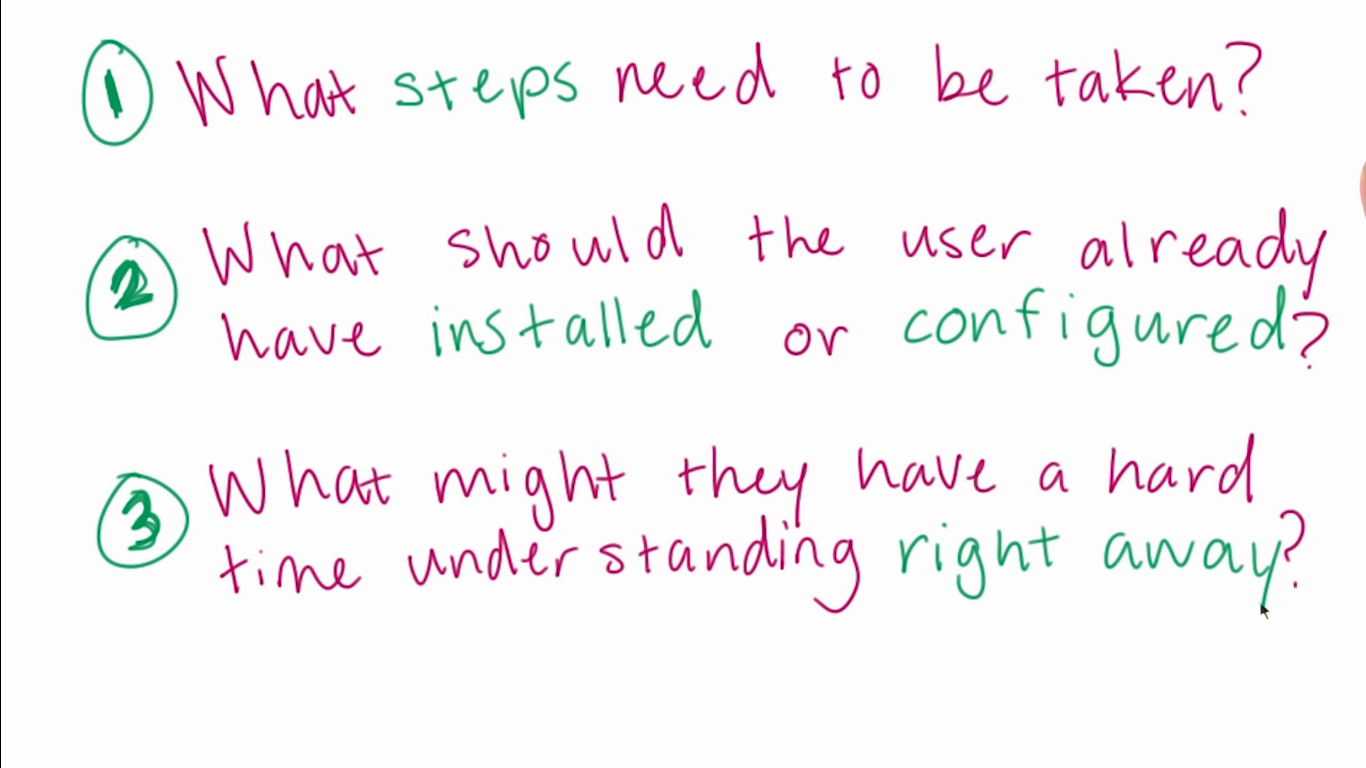 1 What steps need to be taken?
2 What should the user already
have installed or configured?
3 What might they have a hard
time understanding right away?